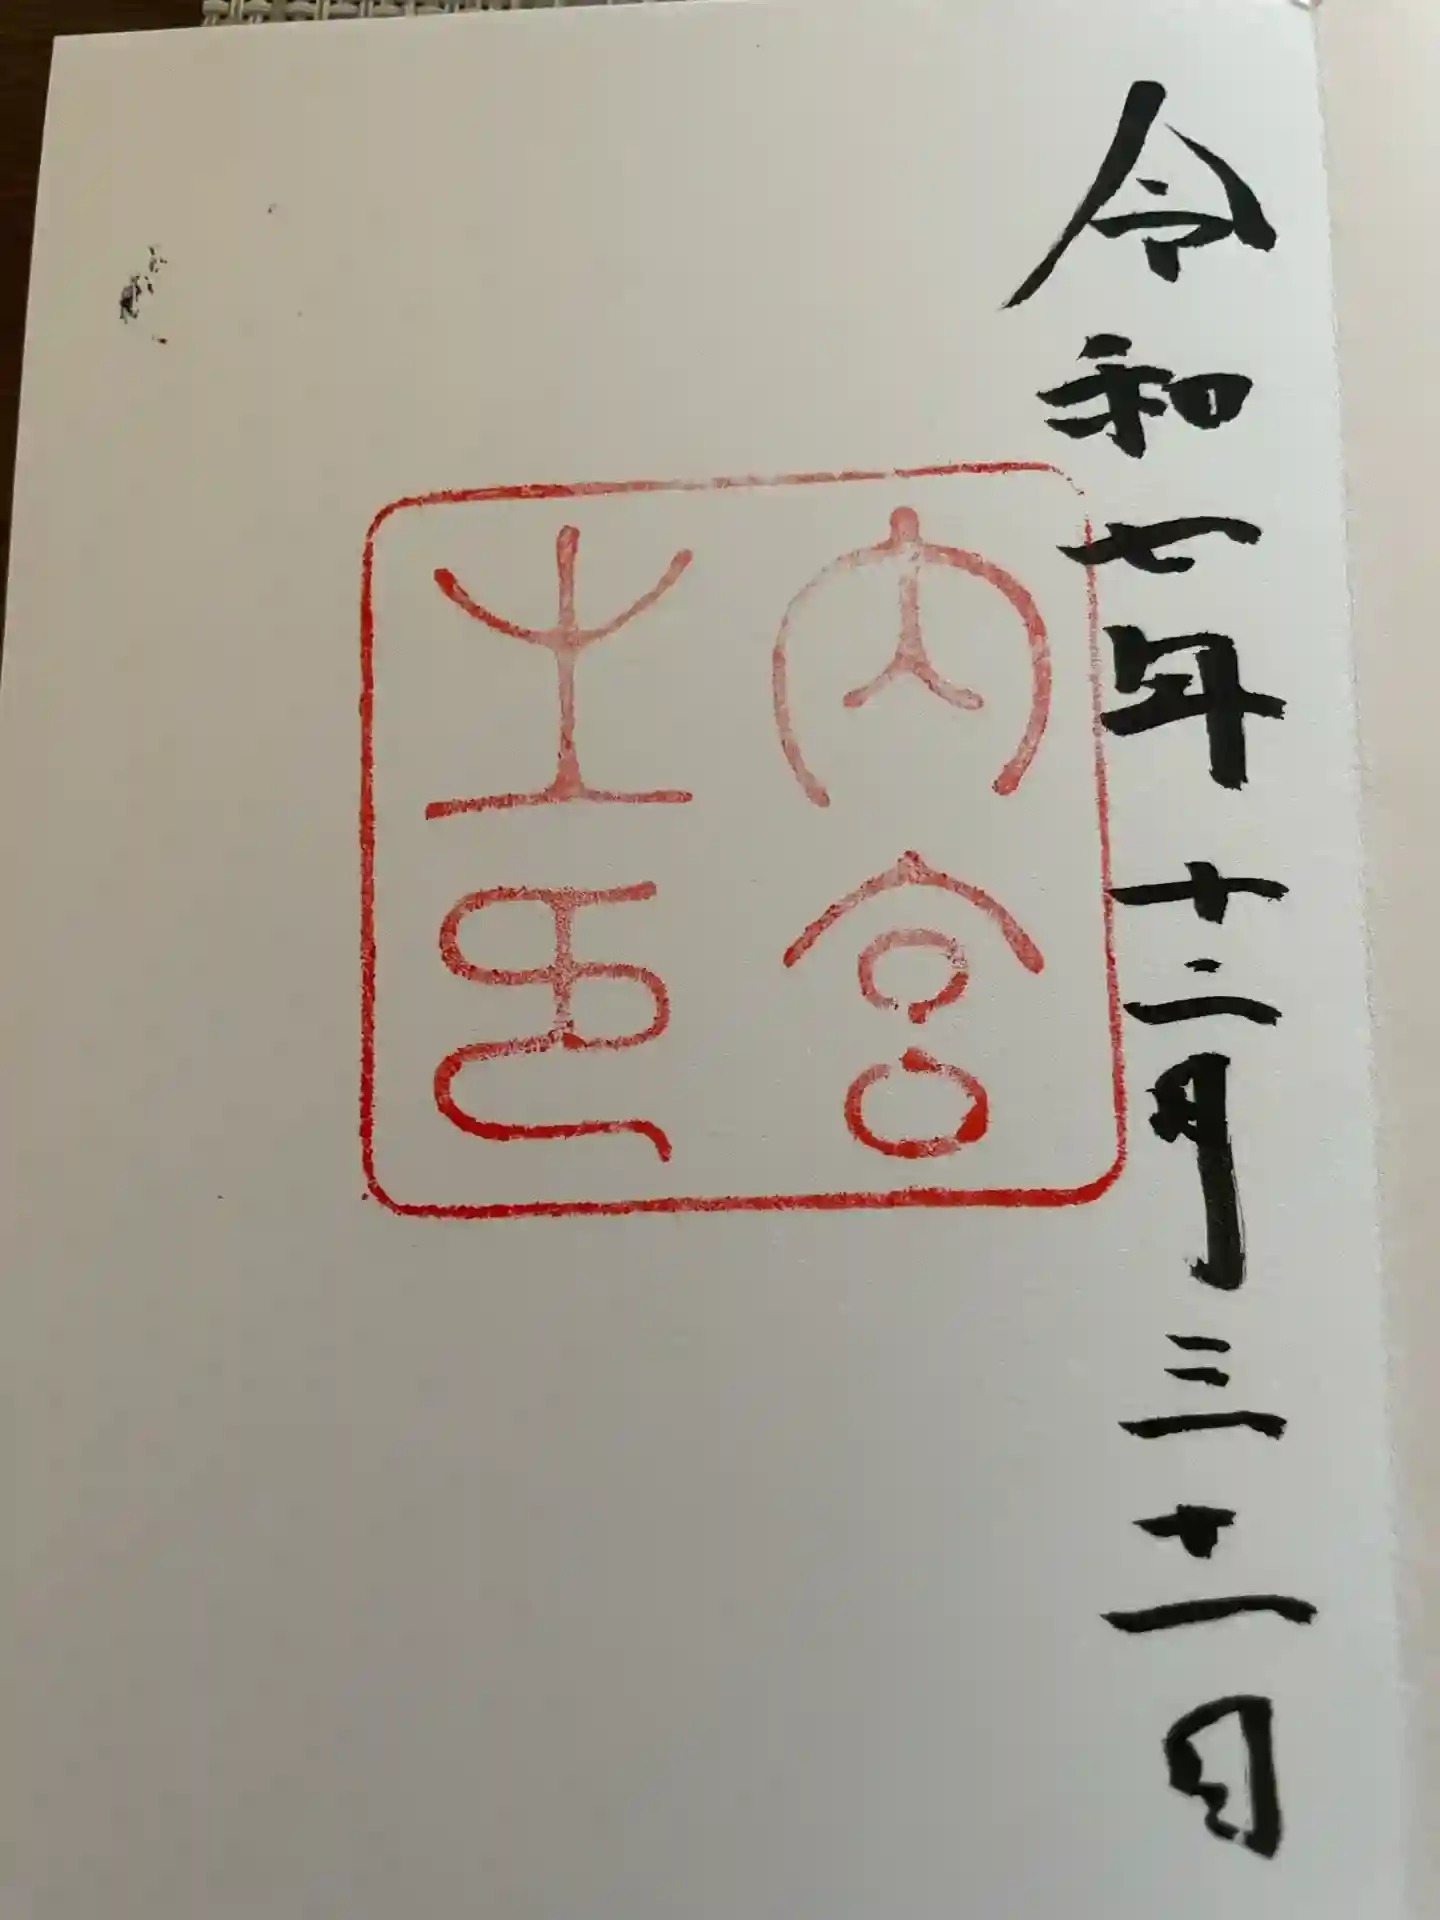 令和七年十二月三十一日
内宮
之印